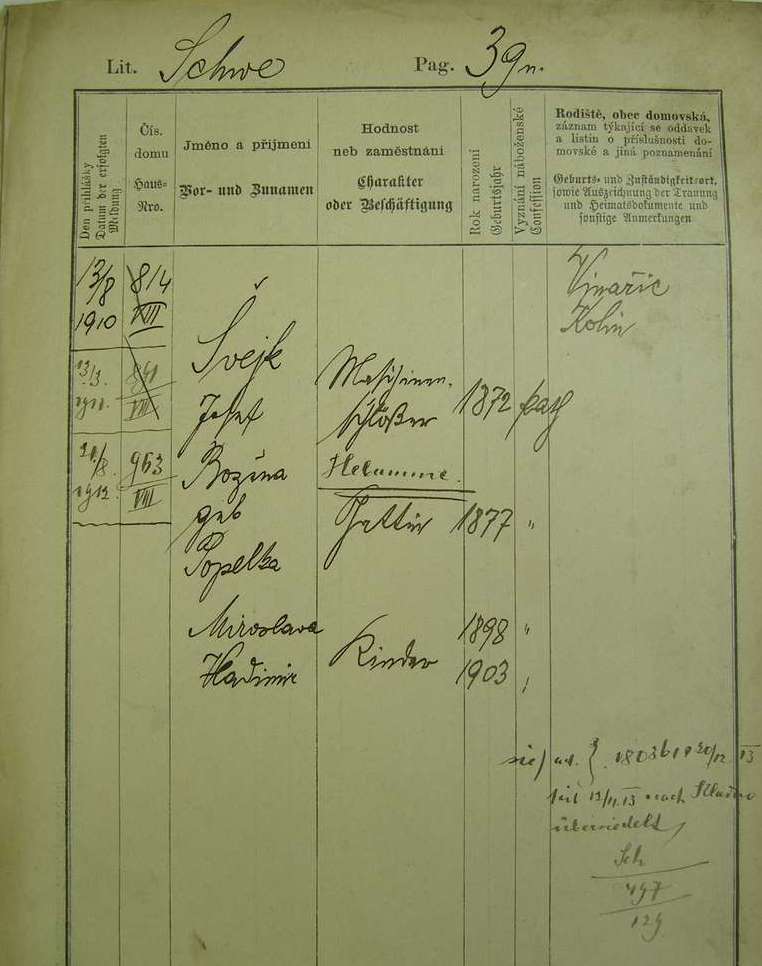 Lit. Schwe Pag. 39n.
Den přihlášky
Datum der erfolgten
Meldung
Čís.
domu
Haus-
Nro.
Jméno a příjmení
Vor- und Zunamen
Hodnost
neb zaměstnání
Charakter
oder Beschäftigung
Rok narození
Geburtsjahr
Vyznání náboženské
Confession
Rodiště, obec domovská,
záznam týkající se oddavek
a listin o příslušnosti do-
movské a jiná poznamenání
Geburts- und Zuständigkeitsort,
sowie Aufzeichnung der Trauung
und Heimatsdokumente und
sonstige Anmerkungen
13/8 814 Vinařic
1910 VIII Kolin
Švejk
13/3. 841 Maschinen-
1911. VIII Josef schlosser 1872 kath
21/8. 963 Bozina Hebamme.
1912. VIII geb Gattin 1877 "
Popelka
Miroslava 1898 "
Vladimir Kinder 1903 "
13
seit 13/11 13 nach Kladno
übersiedelt
Sch
497
129